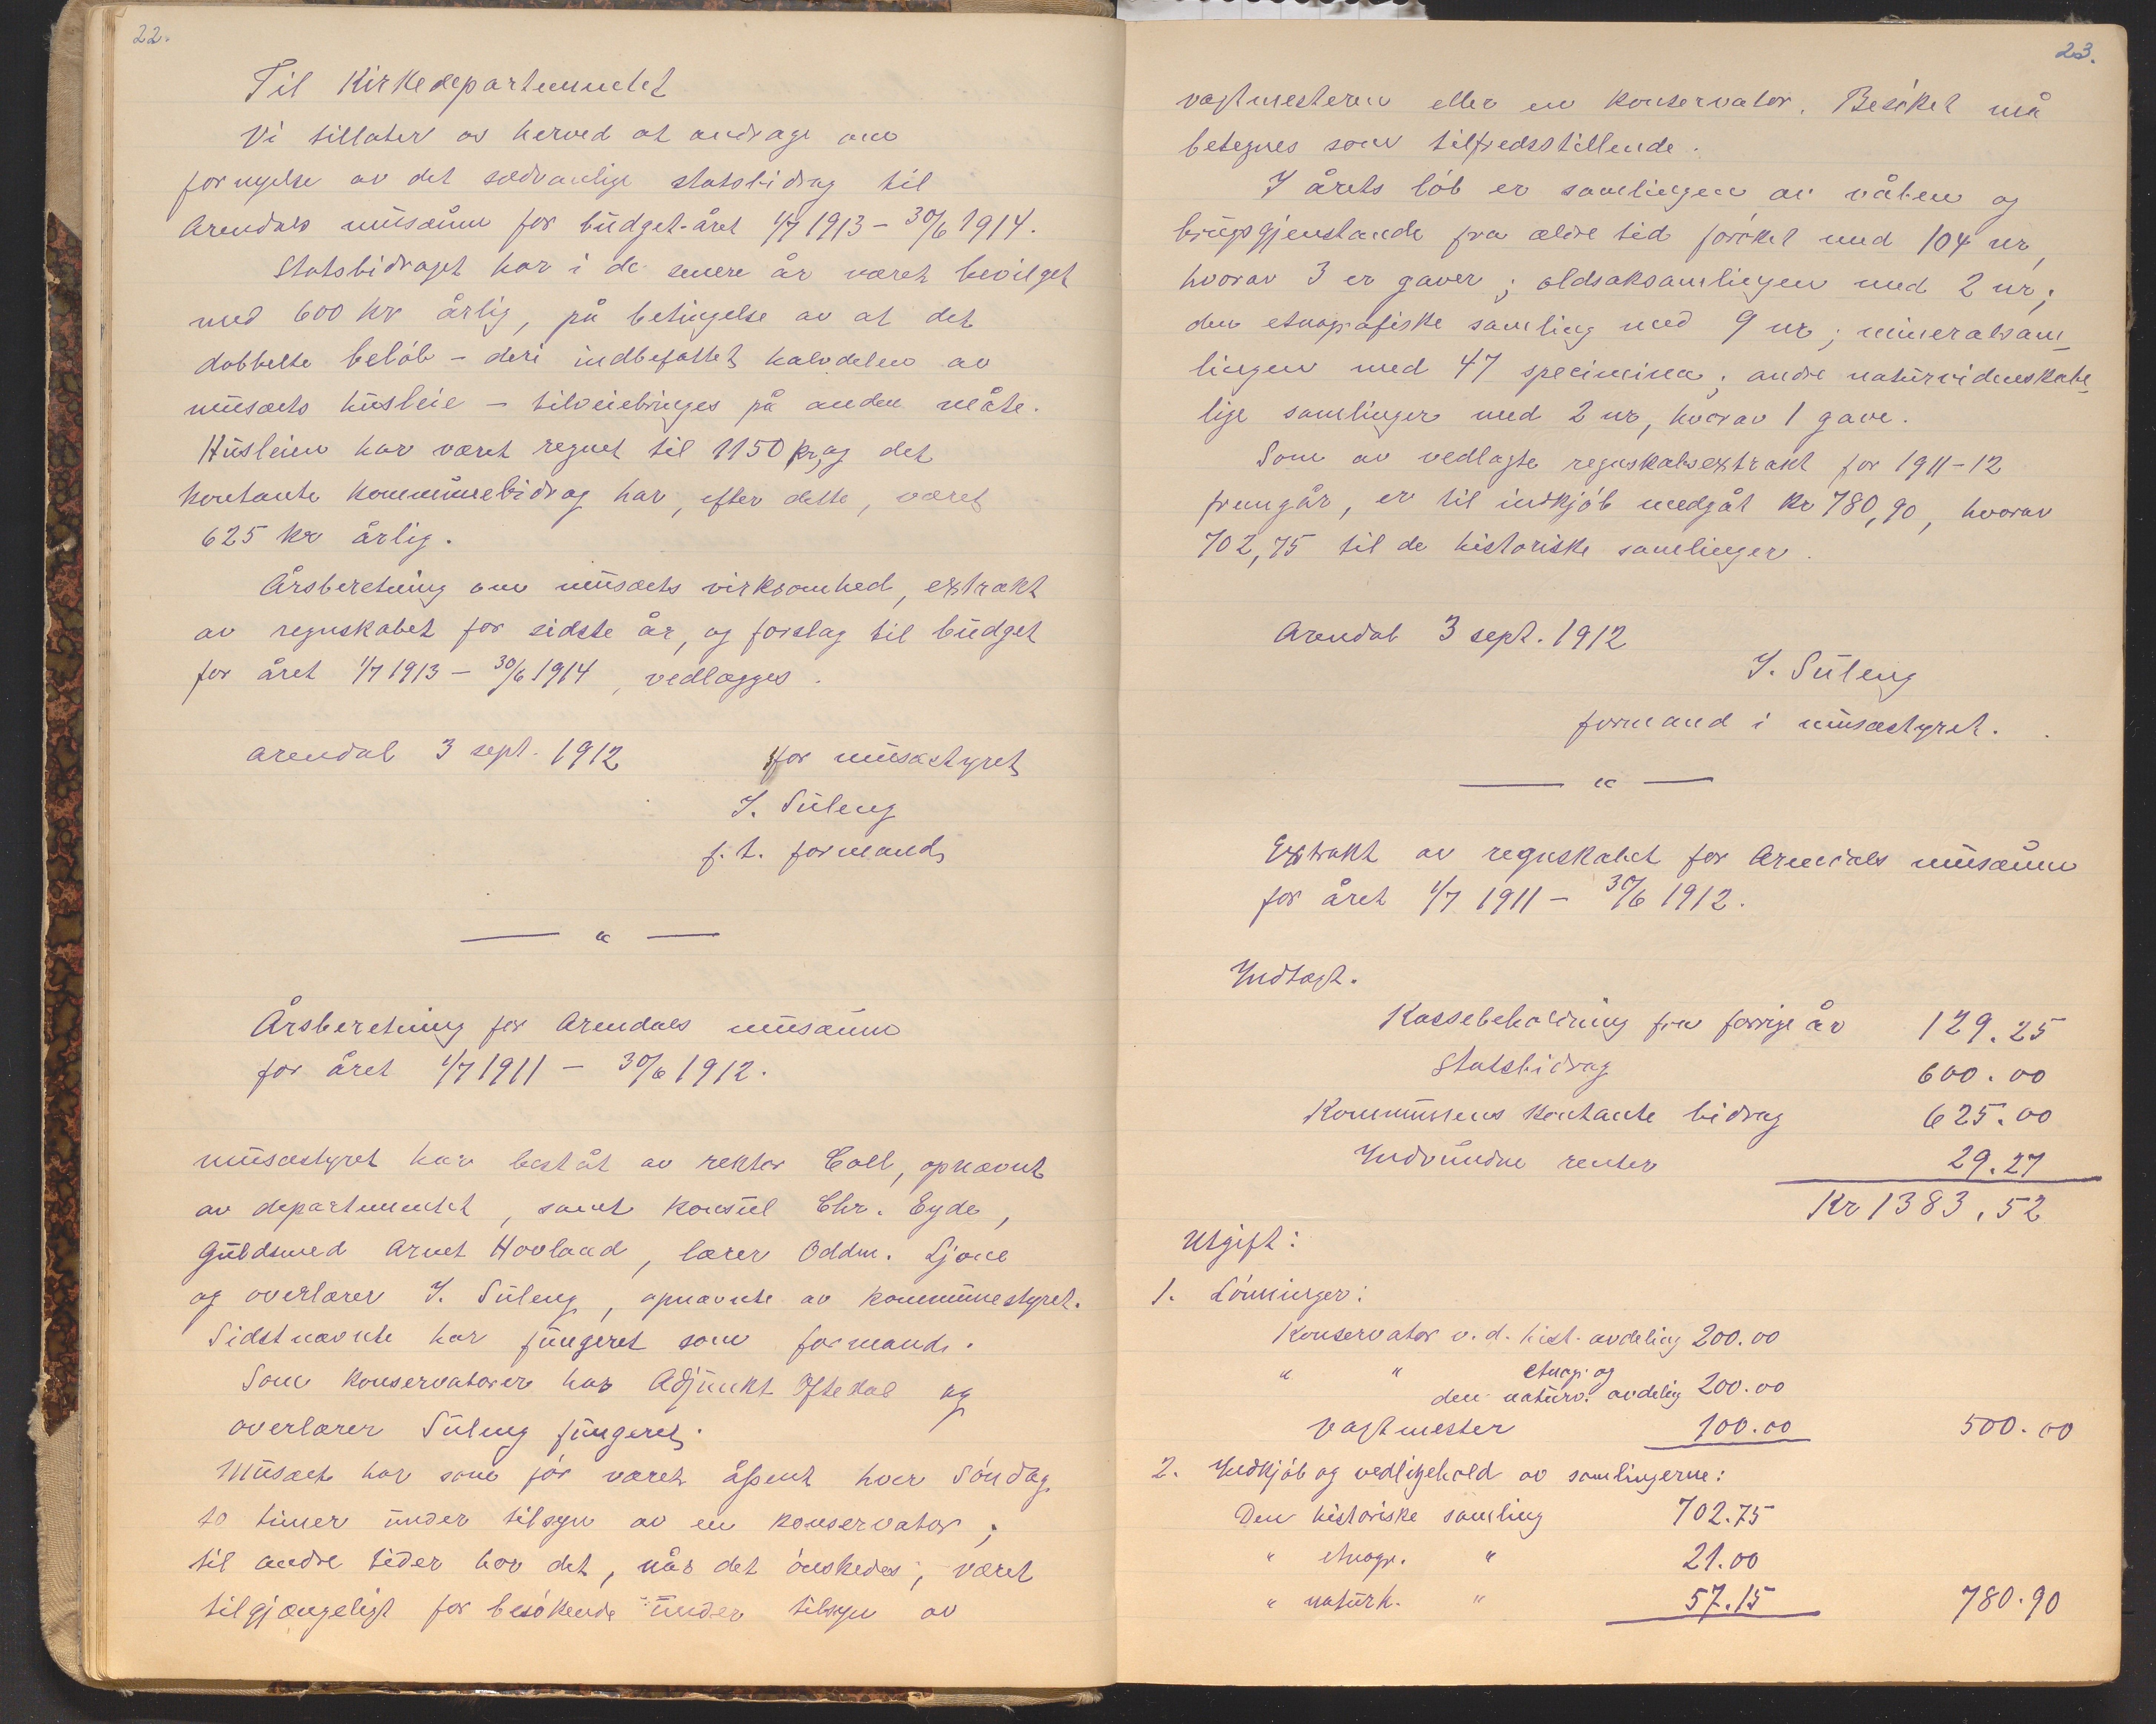 22.
Til Kirkedepartementet
Vi tillater os herved at andrage om
fornyelse av det sædvanlige statsbidrag til
Arendals musæum for budget-året 1/7 1913 - 30/6 1914.
Statsbidraget har i de senere år været bevilget
med 600 kr årlig, på betingelse av at det
dobbelte beløb - deri indbefattet halvdelen av
musæets husleie - tilveiebringes på anden måte.
Husleien har været regnet til 1150 kr, og det
kontante kommunebidrag har, efter dette, været
625 kr årlig.
Årsberetning om musæets virksomhed, extrakt
av regnskabet for sidste år, og forslag til budget
for året 1/7 1913 - 30/6 1914, vedlægges.
Arendal 3 sept. 1912 for musæstyret
I. Suleng
f. t. formand
— " —
Årsberetning for Arendals musæum
for året 1/7 1911 - 30/6 1912.
Musæstyret har beståt av rektor Coll, opnævnt
av departementet, samt konsul Chr. Eyde,
Guldsmed Arnt Hovland, lærer Oddm. Ljone
og overlærer I. Suleng, opnævnte av kommunestyret.
Sidstnævnte har fungeret som formand.
Som konservatorer har Adjunkt Iftekal og
overlærer Suleng fungeret.
Musæet har som før været åpent hver Søndag
to timer under tilsyn av en konservator;
til andre tider har det, når det ønskedes, været
tilgjængeligt for besøkende under tilsyn av
23.
vagtmesteren eller en konservator. Besøket må
betegnes som tilfredsstillende.
I årets løb er samlingen av våben og
brugsgjenstande fra ældre tid forøket med 104 nr,
hvorav 3 er gaver; oldsaksamlingen med 2 nr;
den etnografiske samling med 9 nr; mineralsam-
lingen med 47 specimina; andre naturvidenskabe-
lige samlinger med 2 nr, hvorav 1 gave.
Som av vedlagte regnskabsextrakt for 1911-12
fremgår, er til indkjøb medgåt kr 780,90, hvorav
702,75 til de historiske samlinger.
Arendal 3 sept. 1912
I. Suleng
formand i musæstyret.
— " —
Extrakt av regnskabet for Arendals musæum
for året 1/7 1911 - 30/6 1912.
Indtægt.
Kassebeholdning fra forrige år 129.25
Statsbidrag 600.00
Kommunens kontante bidrag 625.00
Indvundne renter 29.27
Kr 1383,52
Utgift:
1. Lønninger:
Konservator v. d. hist. avdeling 200.00
" " etnogr. og
den naturv. avdelig 200.00
Vagtmester 100.00 500.00
2. Indkjøb og vedligehold av samlingerne:
Den historiske samling 702.75
" etnogr. " 21.00
" naturh. " 57.15 780.90